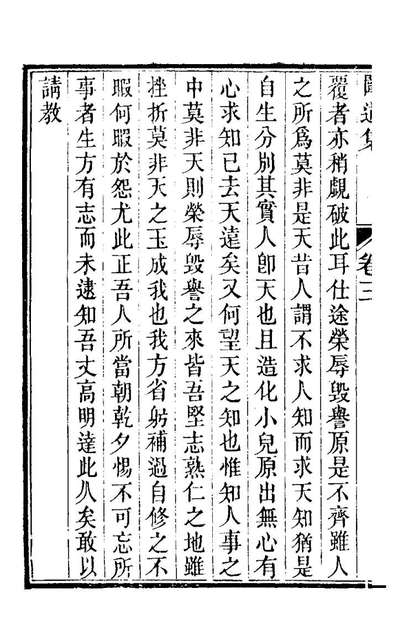 卷三
覆者亦稍覷破此耳仕途榮辱毀譽原是不齊雖人
之所爲莫非是天昔人謂不求人知而求天知猶是
自生分別其實人卽天也且造化小兒原出無心有
心求知已去天遠矣又何望天之知也惟知人事之
中莫非天則榮辱毀譽之來皆吾堅志熟仁之地雖
挫折莫非天之玉成我也我方省躬補過自修之不
暇何暇於怨尤此正吾人所當朝乾夕惕不可忘所
事者生方有志而未逮知吾丈高明達此久矣敢以
請教